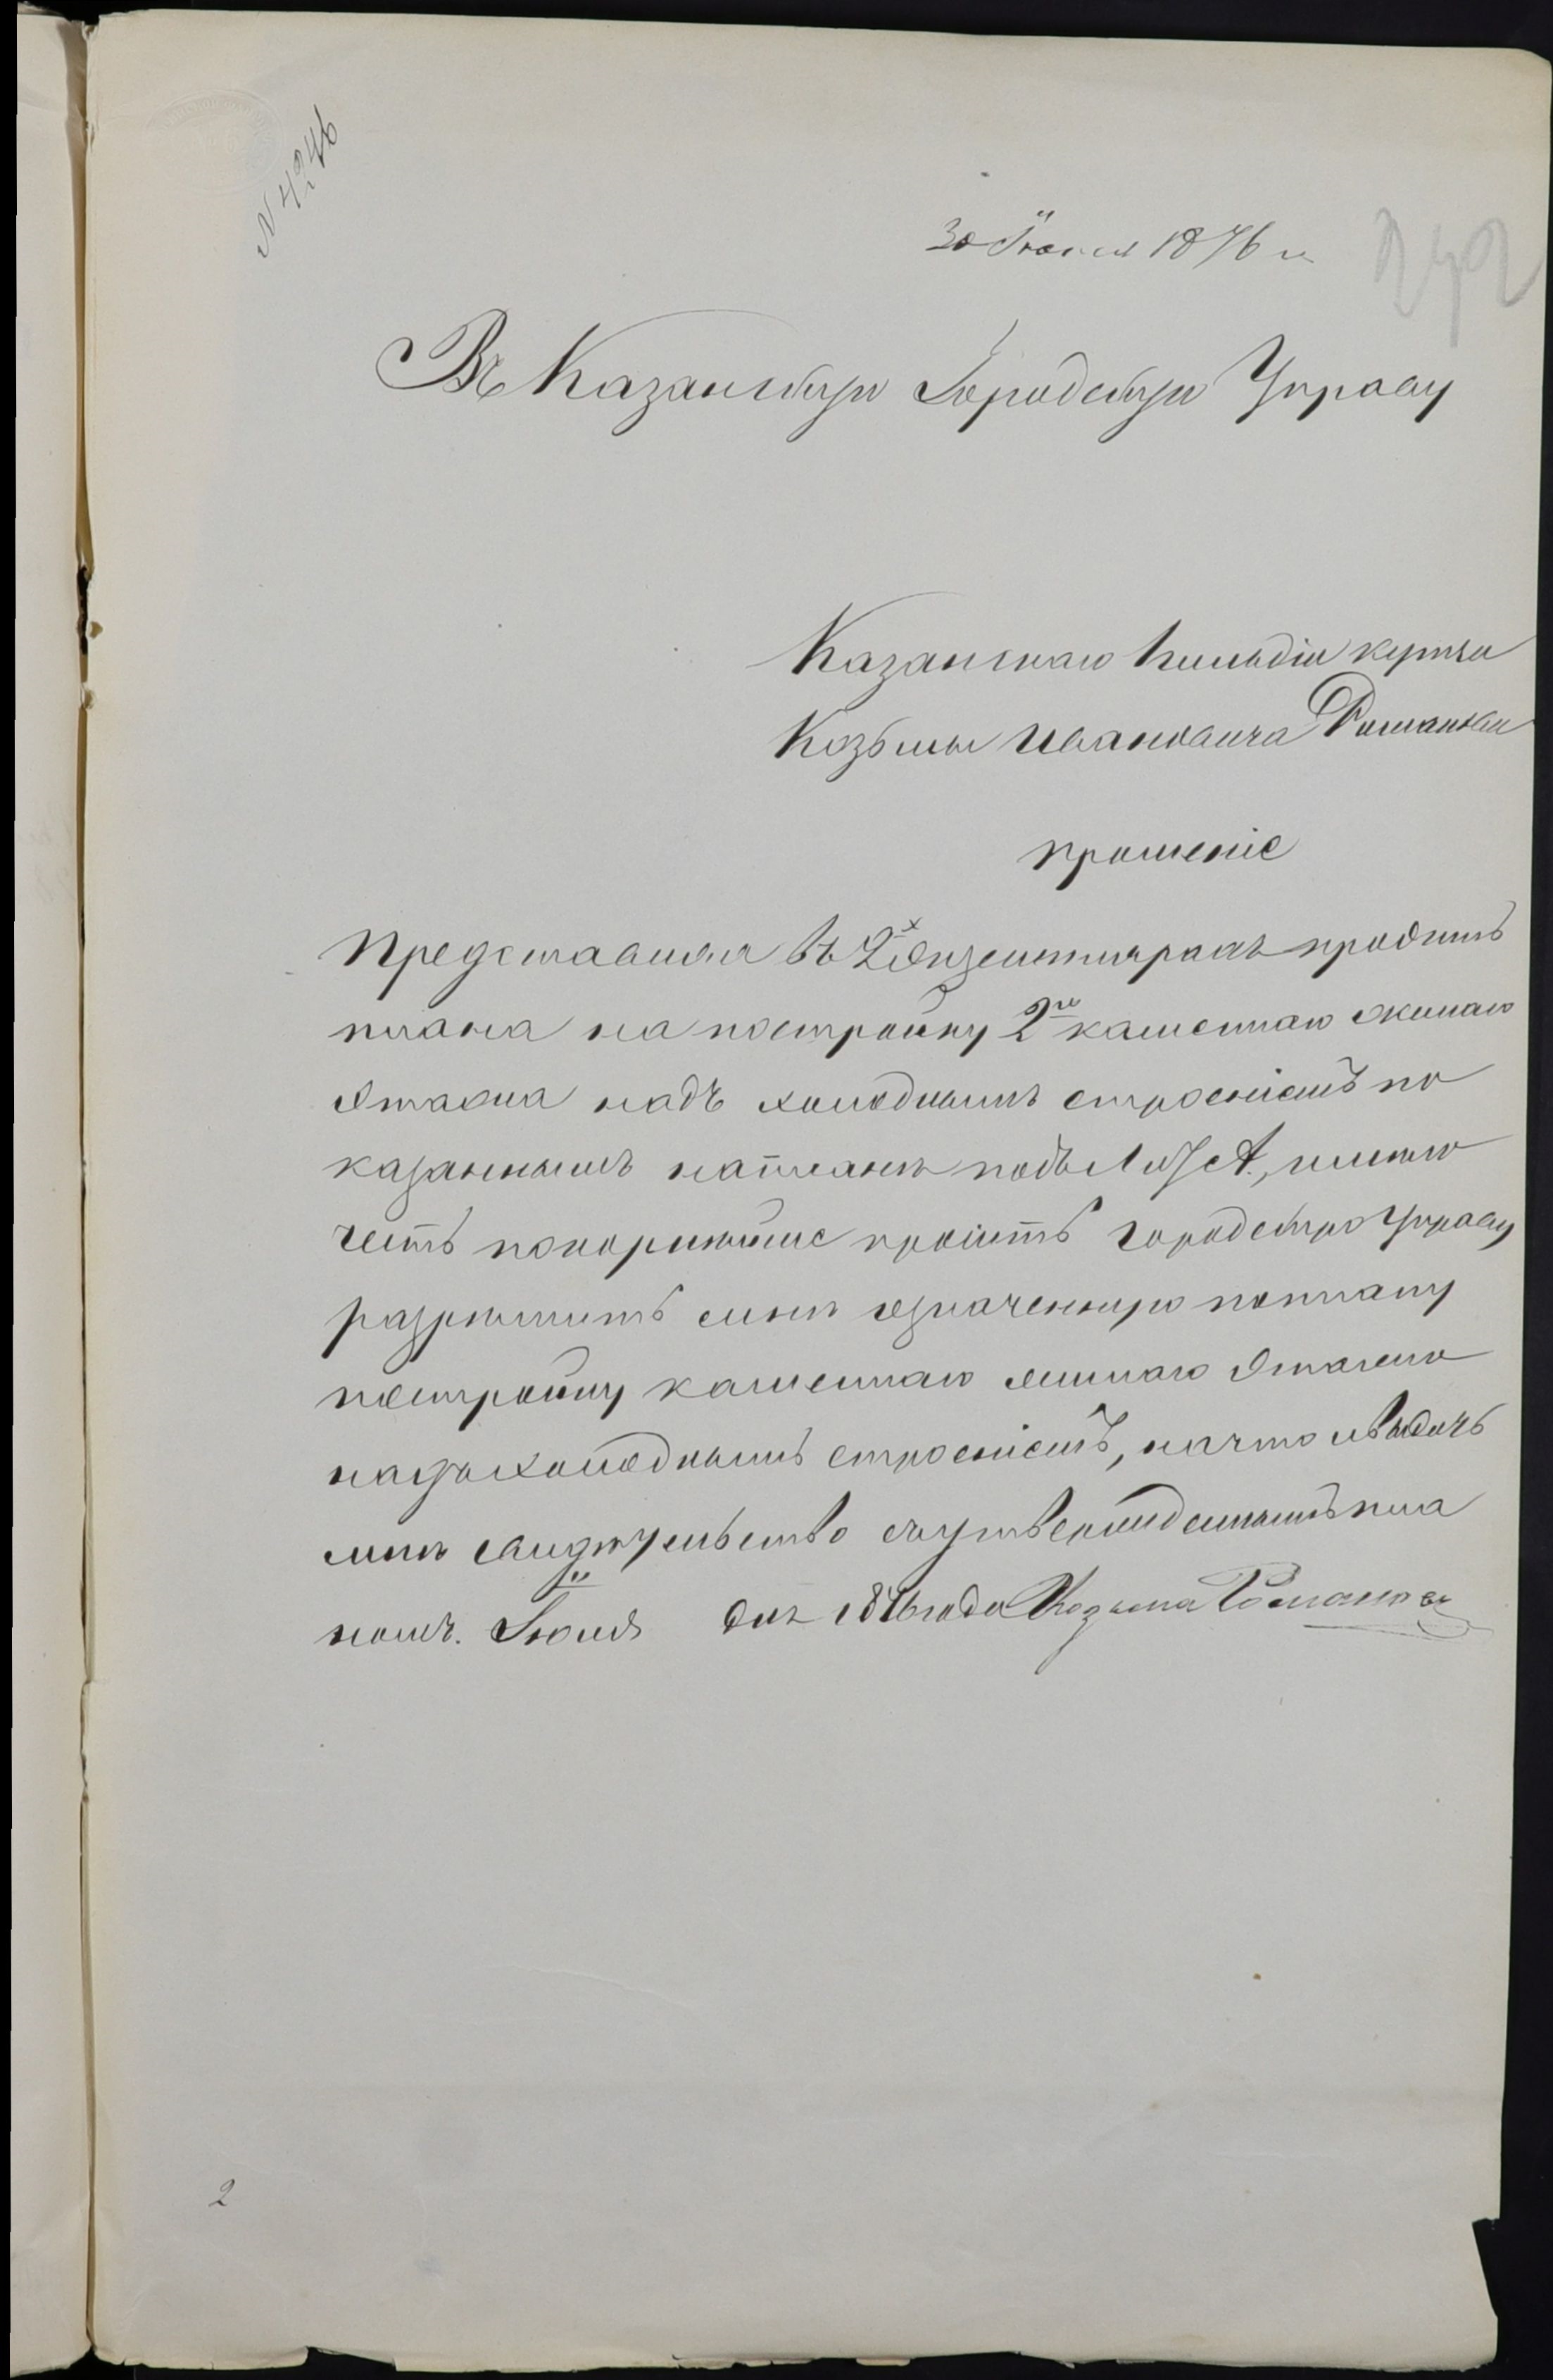 N 4246
30 Июля 1876 г
242
Въ Казанскую Городскую Управу
Казанскаго Гильдіи купца
Козьмы Ивановича Романова
прошеніе
Представляя въ 2х экземплярахъ проэктъ
плана на постройку 2го каменнаго жилаго
этажа надъ холоднымъ строеніемъ по
казаннымъ на планѣ подъ Лит А, имѣю
честь покорнѣйше просить Городскую Управу
разрѣшить мнѣ означенную по плану
постройку каменнаго жилаго этажа
надъ холоднымъ строеніемъ, на что и выдать
мнѣ свидѣтельство съ утвержденнымъ пла
номъ. Іюля " дня 1876 года Козьма Романовъ
2